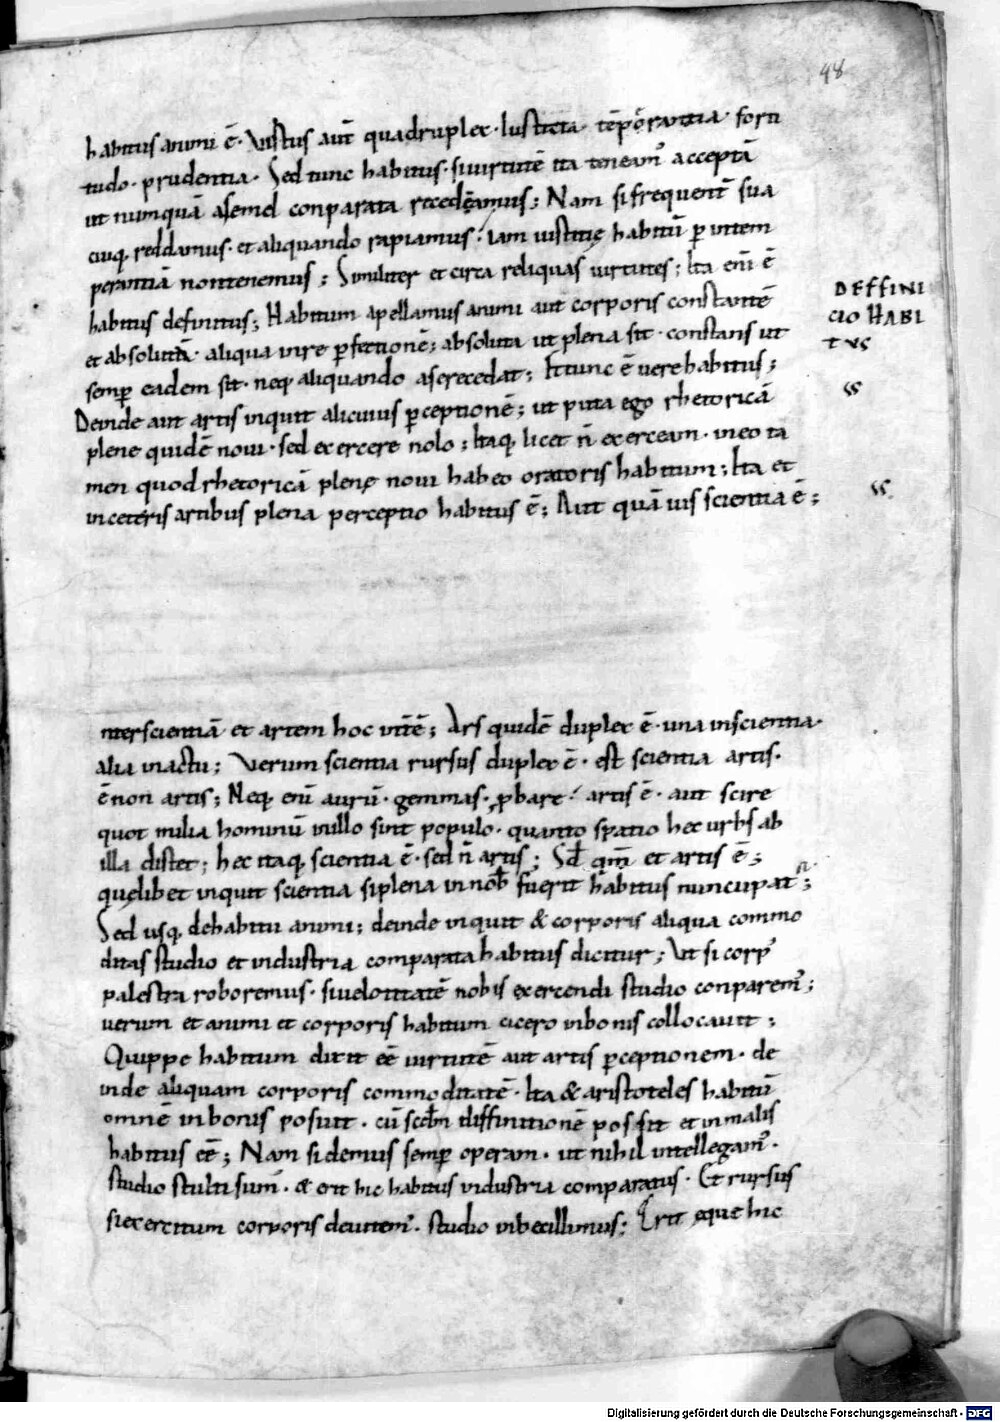 48
habitus animi ē· Virtus aut̄ quadruplex· Iusticia· tēpˉerantia· forti
tudo· prudentia· Sed tunc habitus· si uirtutē ita teneam' acceptā
ut numquā a semel conparata recedeamus; Nam si frequent̄ sua
cuiq; reddamus· et aliquando rapiamus; iam iustitię habitū p intem
perantiā non tenemus; Similiter et circa reliquas uirtutes; Ita eni ē
habitus definitus; Habitum apellamus animi aut corporis constantē
et absolutā· aliqua in re pfectionē; absoluta ut plena sit· constans ut
semp eadem sit· neq; aliquando a se recedat; Et tunc ē uere habitus;
Deinde aut artis inquit alicuius pceptionē; ut puta ego rhetoricā
plene quidē noui· sed exercere nolo; Itaq; licet n̄ exerceam· in eo ta
men quod rhetoricā plenę noui habeo oratoris habitum; Ita et
in ceteris artibus plena perceptio habitus ē; Aut quā uis scientia ē;
DEFFINI
CIO HABI
TVS
nter scientiā et artem hoc int̄ē; Ars quidē duplex ē· una in scientia·
alia in actu; Verum scientia rursus duplex ē· est scientia artis·
ē non artis; Neq; enī aurū· gemmas· pbare artis ē· aut scire
quot milia hominū in illo sint populo· quanto spatio hec urbs ab
illa distet; hec itaq; scientia ē· sed n̄ artis; Sd̄ qm̄ et artis ē;
quęlibet inquit scientia si plena in nob̄ fuerit habitus nuncupat;
Sed usq; de habitu animi; deinde inquit & corporis aliqua commo
ditas studio et industria comparata habitus dicitur; Ut si corp'
palestra roboremus· si uelocitatē nobis exercendi studio conparem';
uerum et animi et corporis habitum cicero in bonis collocauit;
Quippe habitum dixit eē uirtutē aut artis pceptionem· de
inde aliquam corporis commoditatē· Ita & aristoteles habitū
omnē in bonis posuit· cū scd̄m diffinitionē possit et in malis
habitus eē; Nam si demus semp operam· ut nihil intellegam'·
studio stulti sum̄· & erit hic habitus industria comparatus· Et rursus
si exercitum corporis deuitem'· studio inbecillimus; Erit eque hic